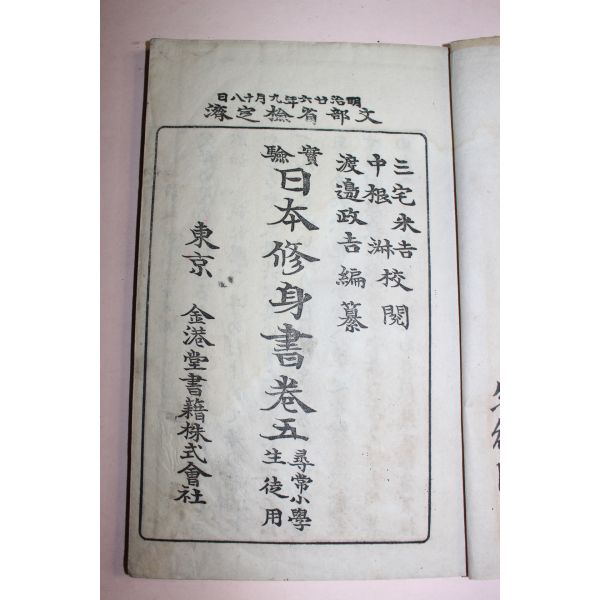 明治廿六年九月十八日
文部省檢定濟
三宅米吉
中根淑 校閲
渡邉政吉 編纂
實驗
日本修身書卷五
尋常小學
生徒用
東京 金港堂書籍株式會社